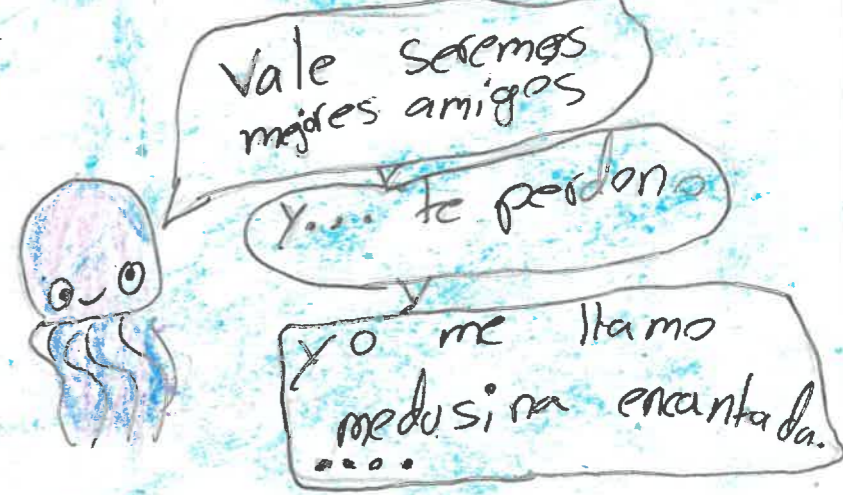 Vale seremos
mejores amigos
y.... te perdono
yo me llamo
medusina encantada.
....